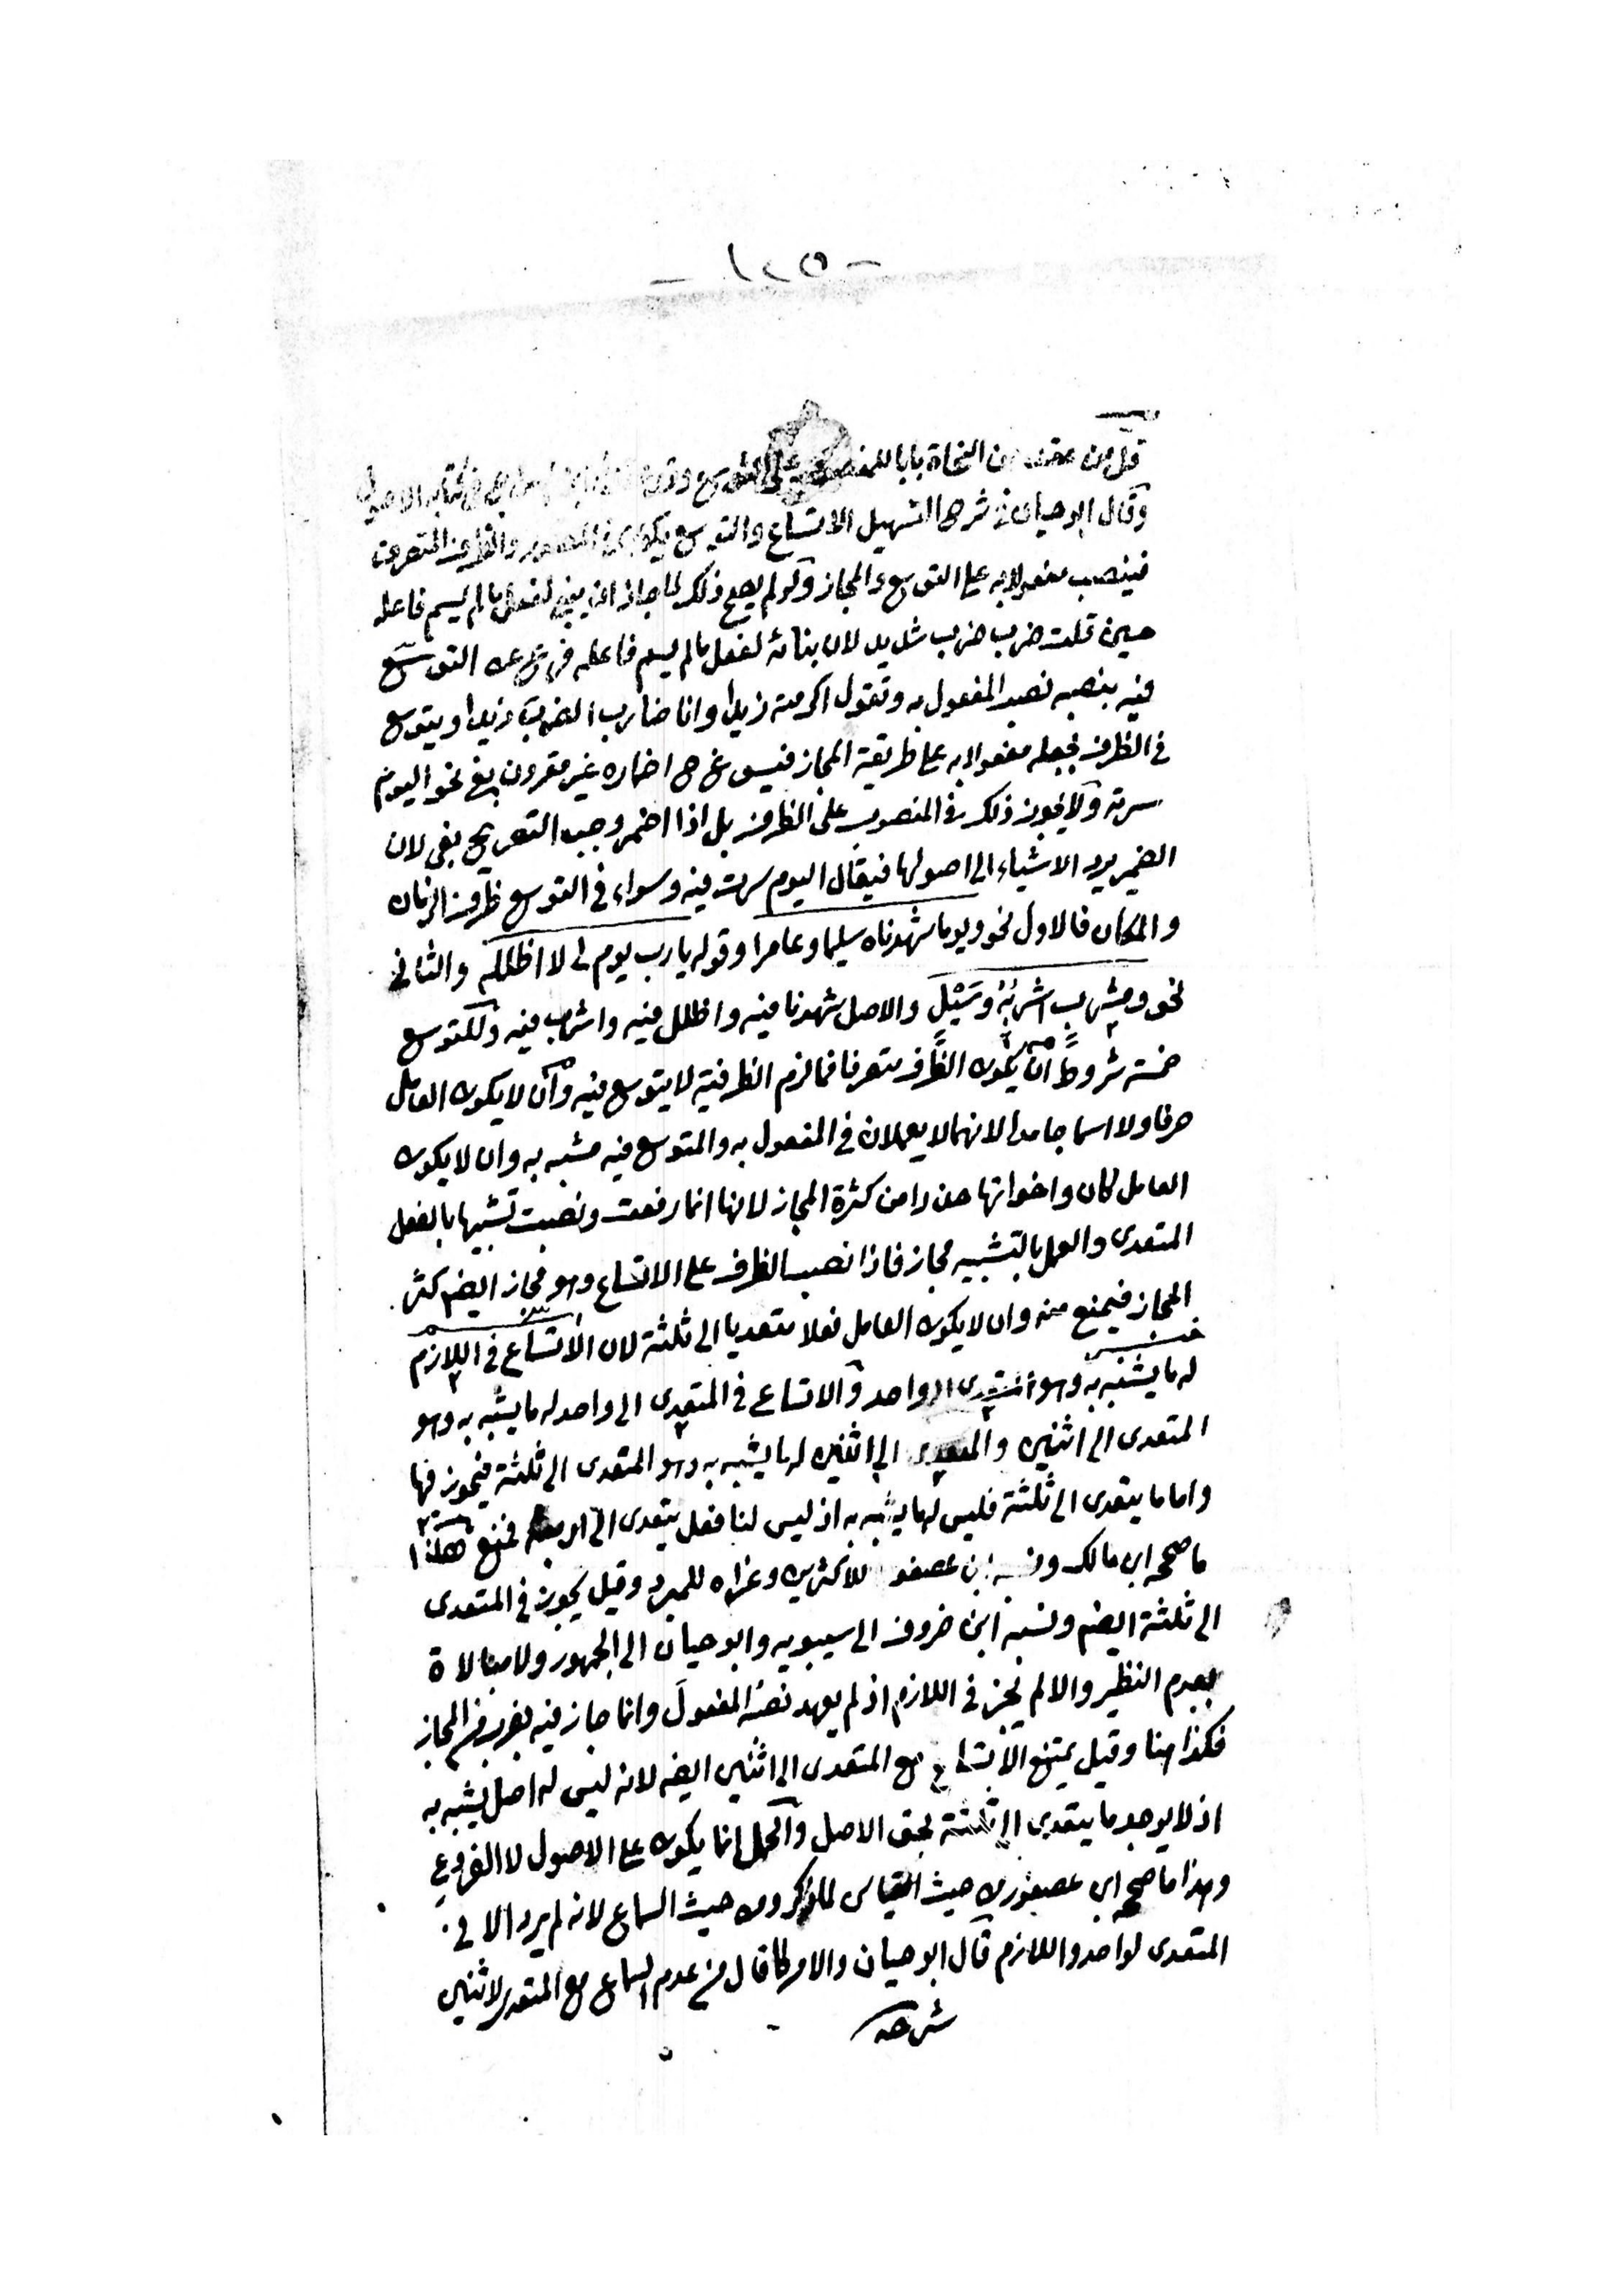 - ١٠٥ -
قل من عقد من النحاة بابا للمفعول على التوسع وقد في كتاب الاصول
وقال ابو حيان في شرح التسهيل الاتساع والتوسع يكون في المصدر والظرف المتصرف
فينصب مفعولا به على التوسع والمجاز ولو لم يصح ذلك لما جاز ان يبنى لفعل ما لم يسم فاعله
حين قلت ضرب ضرب شديد لان بنائه لفعل ما لم يسم فاعله فرع عن التوسع
فيه بنصبه نصب المفعول به وتقول اكرمته زيدا وانا ضارب الضرب زيدا ويتوسع
في الظرف بجعله مفعولا به على طريقة المجاز فيسوغ ح اضماره غير مقرون بفي نحو اليوم
سرته ولا يجوز ذلك في المنصوب على الظرف بل اذا اضمر وجب التصريح بفي لان
الضمير يرد الاشياء الى اصولها فيقال اليوم سرت فيه وسواء في التوسع ظرف الزمان
والمكان فالاول نحو ويوما شهدناه سليما وعامرا وقوله يا رب يوم لى لا اظلله والثاني
نحو ومشرب اشربه وسيل والاصل شهدنا فيه واظلل فيه واشرب فيه وللتوسع
خمسة شروط ان يكون الظرف متصرفا فما لزم الظرفية لا يتوسع فيه وان لا يكون العامل
حرفا ولا اسما جامدا لانهما لا يعملان في المفعول به والمتوسع فيه مشبه به وان لا يكون
العامل كان واخواتها حذرا من كثرة المجاز لانها انما رفعت ونصبت تشبيها بالفعل
المتعدى والعمل بالتشبيه مجاز فاذا نصب الظرف على الاتساع وهو مجاز ايضا كثر
المجاز فيمنع منه وان لا يكون العامل فعلا متعديا الى ثلثة لان الاتساع في اللازم
له ما يشبه به وهو المتعدى الى واحد والاتساع في المتعدى الى واحد له ما يشبه به وهو
المتعدى الى اثنين والمتعدى الى اثنين له ما يشبه به وهو المتعدى الى ثلثة فيجوز فيها
واما ما يتعدى الى ثلثة فليس له ما يشبه به اذ ليس لنا فعل يتعدى الى اربعة فمنع هكذا
ما صححه ابن مالك ونسبه ابن عصفور للاكثرين وعزاه للمبرد وقيل يجوز في المتعدى
الى ثلثة ايضا ونسبه ابن خروف الى سيبويه وابو حيان الى الجمهور ولا مبالاة
بعدم النظير والا لم يجز في اللازم اذ لم يعهد نصبه المفعول وانما جاز فيه بضرب من المجاز
فكذا هنا وقيل يمتنع الاتساع مع المتعدى الى اثنين ايضا لانه ليس له اصل يشبه به
اذ لا يوجد ما يتعدى الى ثلثة بحق الاصل والحمل انما يكون على الاصول لا الفروع
وهذا ما صححه ابن عصفور من حيث القياس للذكر ومن حيث السماع لانه لم يرد الا في
المتعدى لواحد واللازم قال ابو حيان والامر كما قال من عدم السماع مع المتعدى لاثنين
شرحه